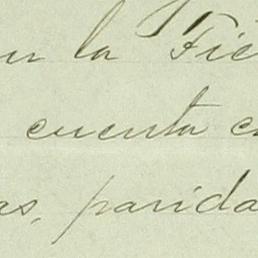 en la Fie
cuenta c
as, parida